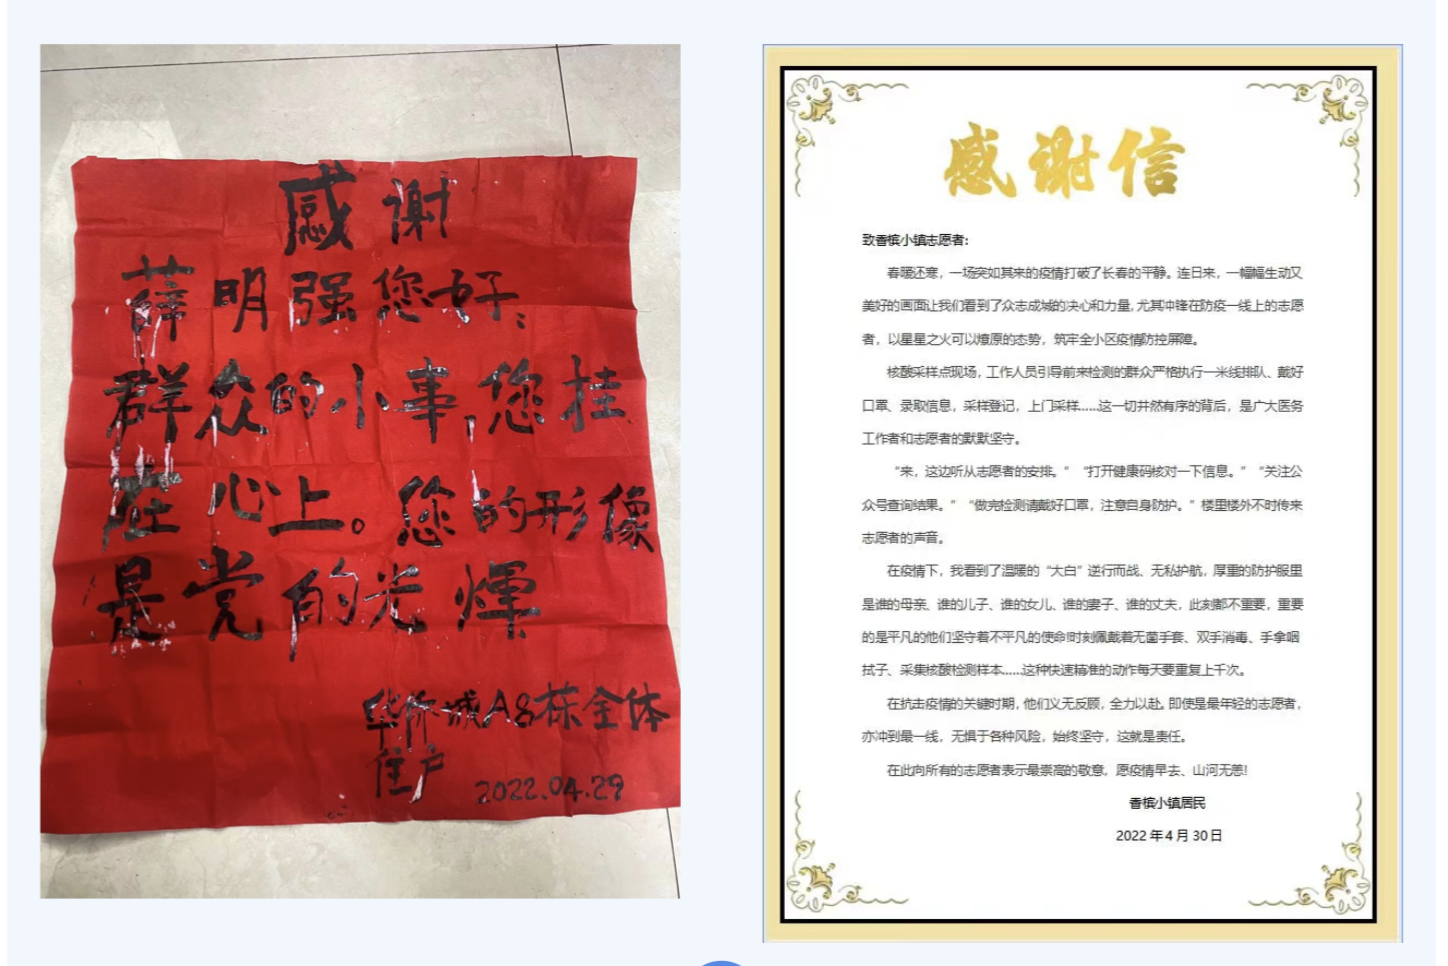 感谢
薛明强您好：
群众的小事，您挂
在心上。您的形像
是党的光煇
华侨城A8栋全体
住户
2022.04.29
感谢信
致香槟小镇志愿者：
春暖还寒，一场突如其来的疫情打破了长春的平静。连日来，一幅幅生动又
美好的画面让我们看到了众志成城的决心和力量，尤其冲锋在防疫一线上的志愿
者，以星星之火可以燎原的态势，筑牢全小区疫情防控屏障。
核酸采样点现场，工作人员引导前来检测的群众严格执行一米线排队、戴好
口罩、录取信息，采样登记，上门采样......这一切井然有序的背后，是广大医务
工作者和志愿者的默默坚守。
“来，这边听从志愿者的安排。”“打开健康码核对一下信息。”“关注公
众号查询结果。”“做完检测请戴好口罩，注意自身防护。”楼里楼外不时传来
志愿者的声音。
在疫情下，我看到了温暖的“大白”逆行而战、无私护航，厚重的防护服里
是谁的母亲、谁的儿子、谁的女儿、谁的妻子、谁的丈夫，此刻都不重要，重要
的是平凡的他们坚守着不平凡的使命!时刻佩戴着无菌手套、双手消毒、手拿咽
拭子、采集核酸检测样本......这种快速精准的动作每天要重复上千次。
在抗击疫情的关键时期，他们义无反顾，全力以赴。即使是最年轻的志愿者，
亦冲到最一线，无惧于各种风险，始终坚守，这就是责任。
在此向所有的志愿者表示最崇高的敬意，愿疫情早去、山河无恙!
香槟小镇居民
2022 年 4 月 30 日